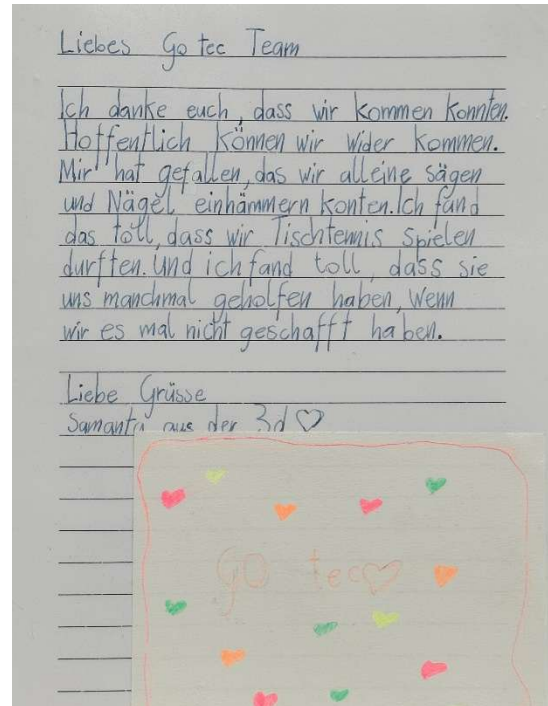 Liebes Go tec Team
Ich danke euch, dass wir kommen konnten.
Hoffentlich können wir wider kommen.
Mir hat gefallen, das wir alleine sägen
und Nägel einhämmern konten. Ich fand
das toll, dass wir Tischtennis spielen
durften. Und ich fand toll, dass sie
uns manchmal geholfen haben, wenn
wir es mal nicht geschafft haben.
Liebe Grüsse
Samanta aus der 3d ♡
GO tec♡